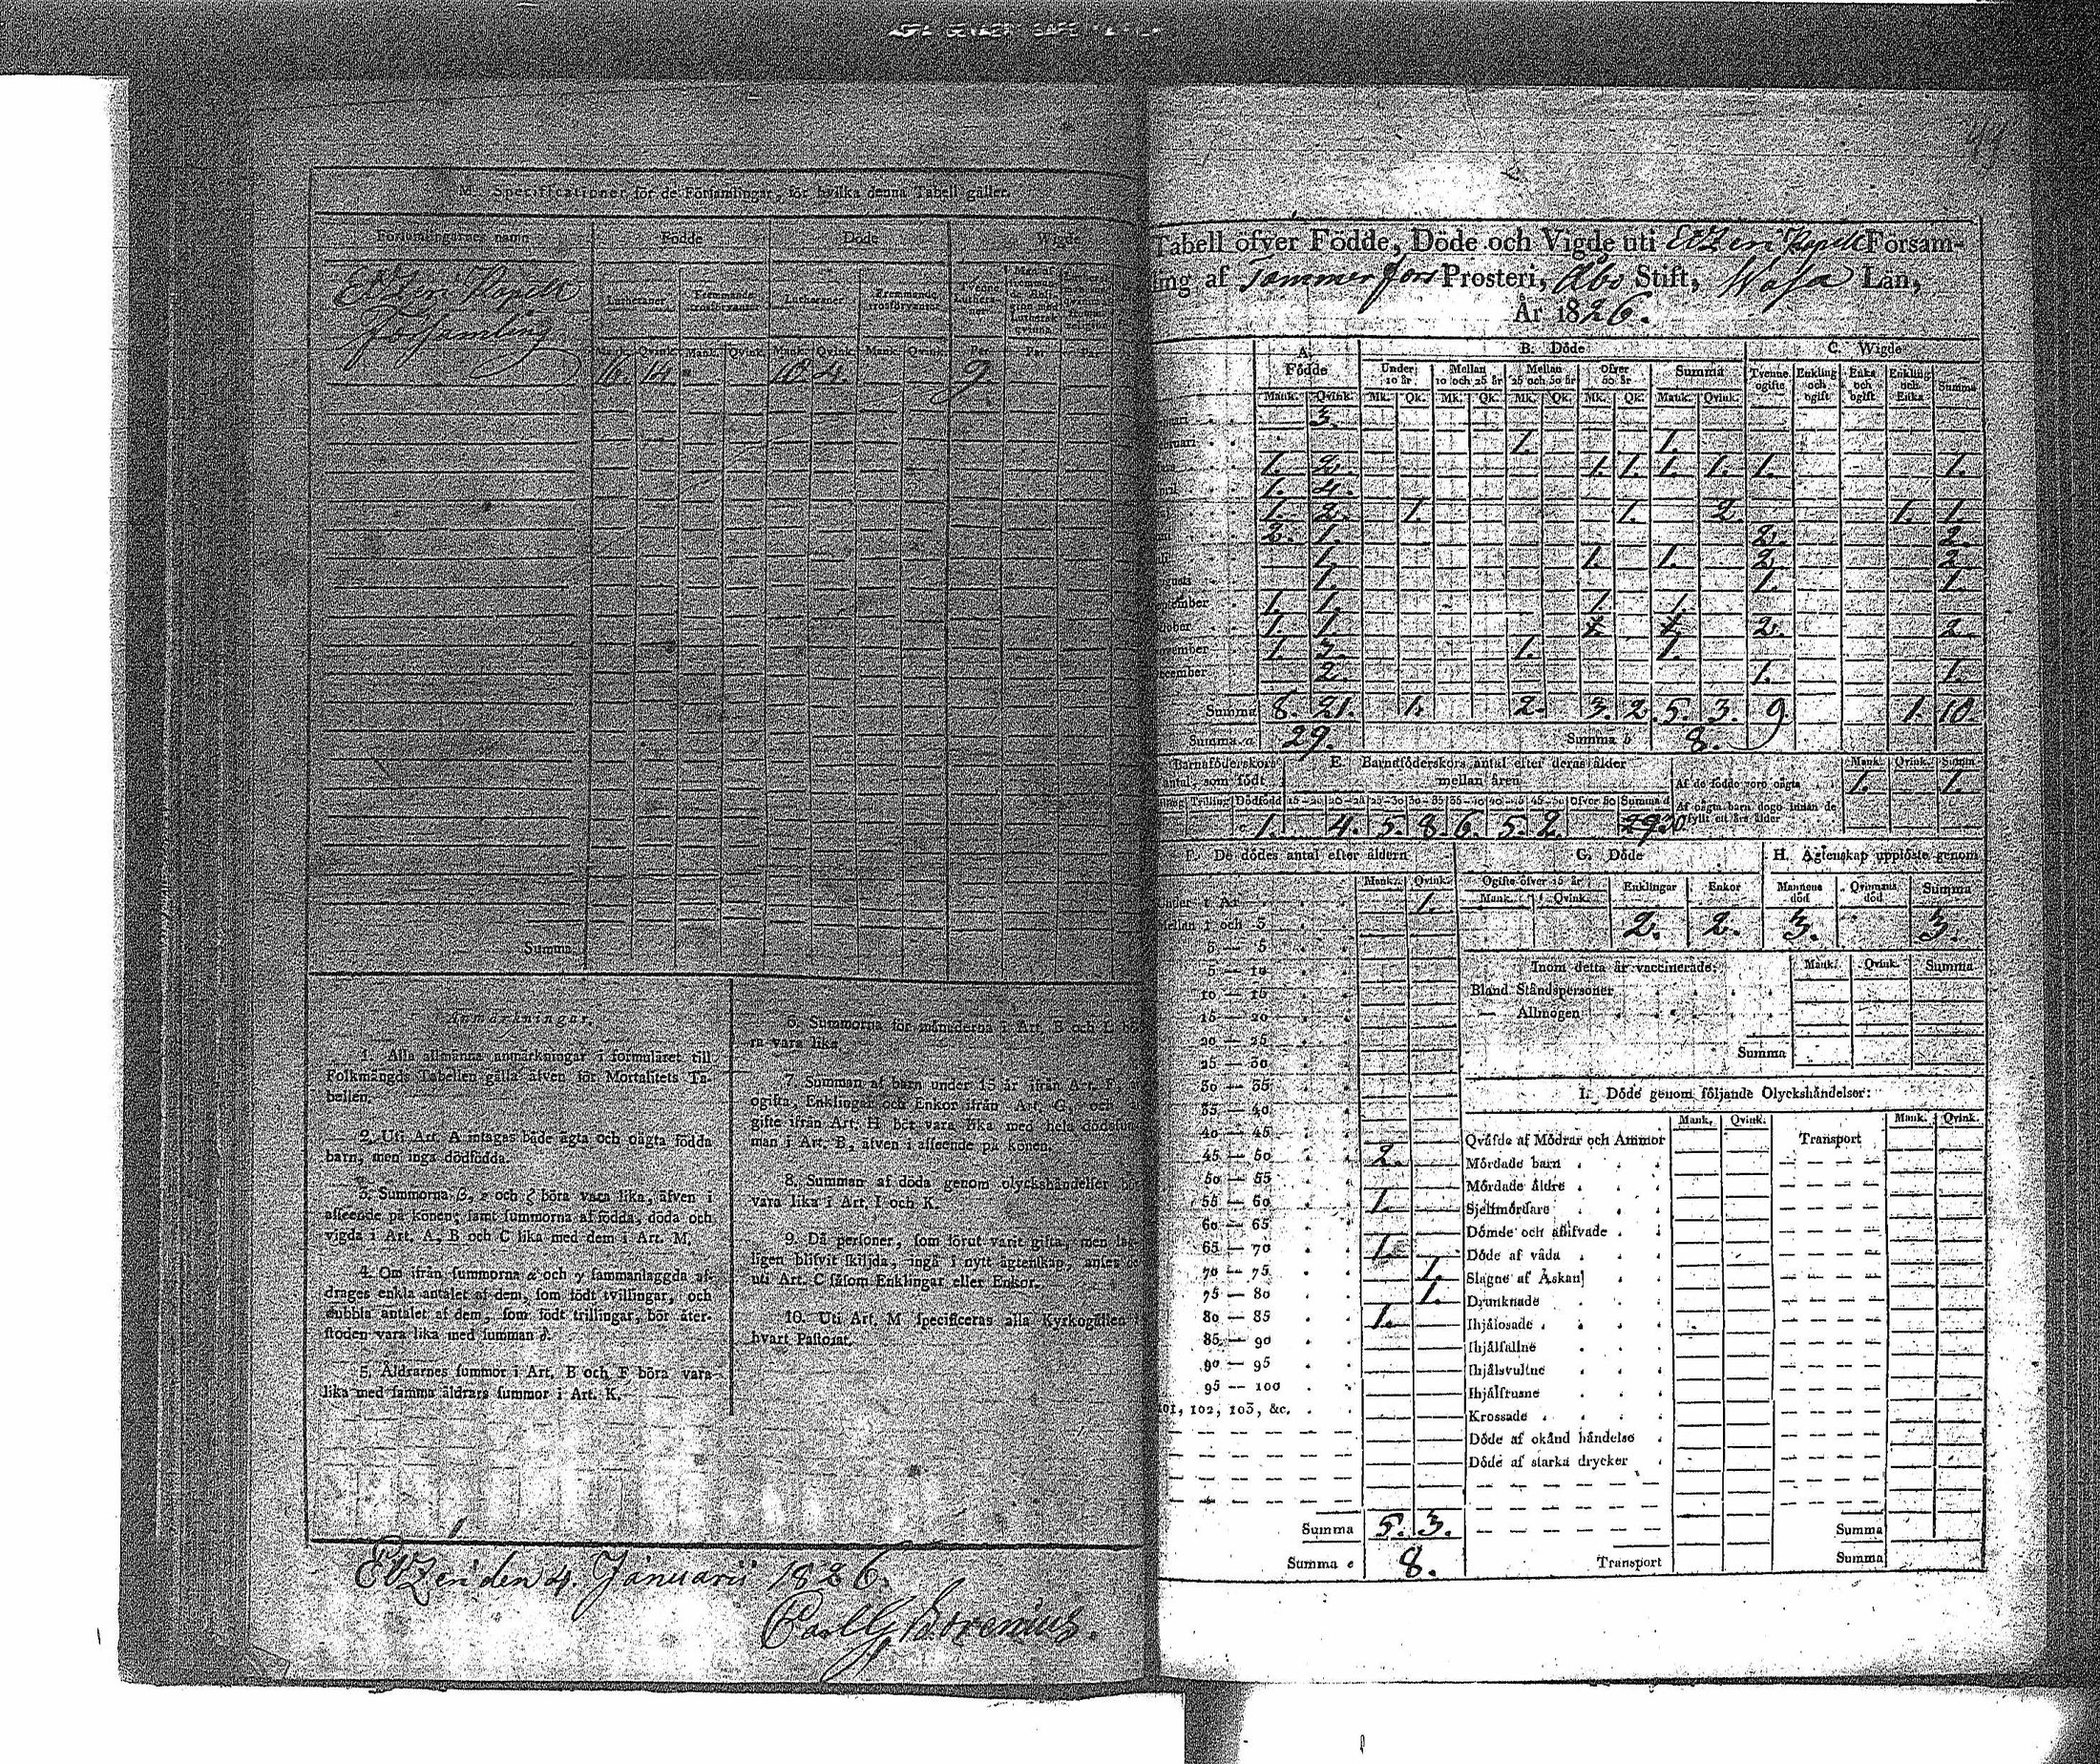 M. Specificationer för de Församlingar, för hvilka denna Tabell gäller.
Församlingarnes namn Födde Döde Wigde
Lutheraner Fremmande trosförvanter Lutheraner Fremmande trosförvanter
Mank. Qvink. Mank. Qvink. Mank. Qvink. Mank. Qvink. Par Par Par
Kapells
Församling
16. 14. 10. 4. 9.
Summa
Anmärkningar.
1. Alla allmänna anmärkningar i formuläret till
Folkmängds Tabellen gälla äfven för Mortalitets Ta-
bellen.
2. Uti Art. A intages både ägta och oägta födda
barn, men inga dödfödda.
3. Summorna β, ε och ζ böra vara lika, äfven i
afseende på könen; samt summorna af födda, döda och
vigda i Art. A, B och C lika med dem i Art. M.
4. Om ifrån summorna α och γ sammanlaggda af-
drages enkla antalet af dem, som födt tvillingar, och
dubbla antalet af dem, som födt trillingar, bör åter-
stoden vara lika med summan δ.
5. Åldrarnes summor i Art. B och F böra vara
lika med samma åldrars summor i Art. K.
6. Summorna för månaderna i Art. B och L bö
ra vara lika.
7. Summan af barn under 15 år ifrån Art. F,
ogifta, Enklingar och Enkor ifrån Art. G, och
gifte ifrån Art. H bör vara lika med hela dödssum
man i Art. B, äfven i afseende på könen.
8. Summan af döda genom olyckshändelser bör
vara lika i Art. I och K.
9. Då personer, som förut varit gifta, men lag
ligen blifvit skiljda, ingå i nytt ägtenskap, anses de
uti Art. C såsom Enklingar eller Enkor.
10. Uti Art. M specificeras alla Kyrkogällen i
hvart Pastorat.
den 4. Januarii 1826.
Carl G Borenius.
Tabell öfver Födde, Döde och Vigde uti Kapells Försam-
ing af Tammerfors Prosteri, Åbo Stift, Wasa Län,
År 1826.
A. Födde B. Döde C. Wigde
Under 10 år Mellan 10 och 25 år Mellan 25 och 50 år Öfver 50 år Summa Tvenne ogifte Enkling och ogift Enka och ogift Enkling och Enka Summa
Mank. Qvink. Mk. Qk. Mk. Qk. Mk. Qk. Mk. Qk. Mank. Qvink.
3.
1. 1.
1. 2. 1. 1. 1. 1. 1. 1.
1. 4.
1. 2. 1. 1. 2. 1. 1.
2. 1. 2. 2.
1. 1. 1. 2. 2.
1. 1. 1.
1. 1. 1. 1.
1. 1. 2. 2.
1. 3. 1. 1.
2. 1. 1.
Summa 8. 21. 1. 2. 3. 2. 5. 3. 9 1. 10.
Summa a 29. Summa b 8.
Barnaföderskors antal, som födt E. Barnaföderskors antal efter deras ålder mellan åren Mank. Qvink. Summa
Trilling Dödfödd 15—20 20—25 25—30 30—35 35—40 40—45 45—50 Öfver 50 Summa d
Af de födde voro oägta 1. 1.
Af oägta barn dogo innan de fyllt ett års ålder
1. 4. 5. 8. 6. 5. 2. 30.
F. De dödes antal efter åldern G. Döde H. Ägtenskap upplöste genom
Mank. Qvink. Ogifte öfver 15 år Enklingar Enkor Mannens död Qvinnans död Summa
Mank. Qvink.
2. 2. 3. 3.
Under 1 År 1.
Mellan 1 och 3
3 — 5
5 — 10
10 — 15
15 — 20
20 — 25
25 — 30
30 — 35
35 — 40
40 — 45
45 — 50 2.
50 — 55
55 — 60 1.
60 — 65
65 — 70 1.
70 — 75 1.
75 — 80 1.
80 — 85 1.
85 — 90
90 — 95
95 — 100
101, 102, 103, &c.
Summa 5. 3.
Summa e 8.
Inom detta år vaccinerade: Mank. Qvink. Summa
Bland Ståndspersoner
— Allmogen
Summa
I. Döde genom följande Olyckshändelser:
Mank. Qvink. Mank. Qvink.
Qväfde af Mödrar och Ammor Transport
Mördade barn
Mördade äldre
Sjelfmördare
Dömde och aflifvade
Döde af våda
Slagne af Åskan
Drunknade
Ihjälosade
Ihjälfallne
Ihjälsvultne
Ihjälfrusne
Krossade
Döde af okänd händelse
Döde af starka drycker
Summa
Transport Summa